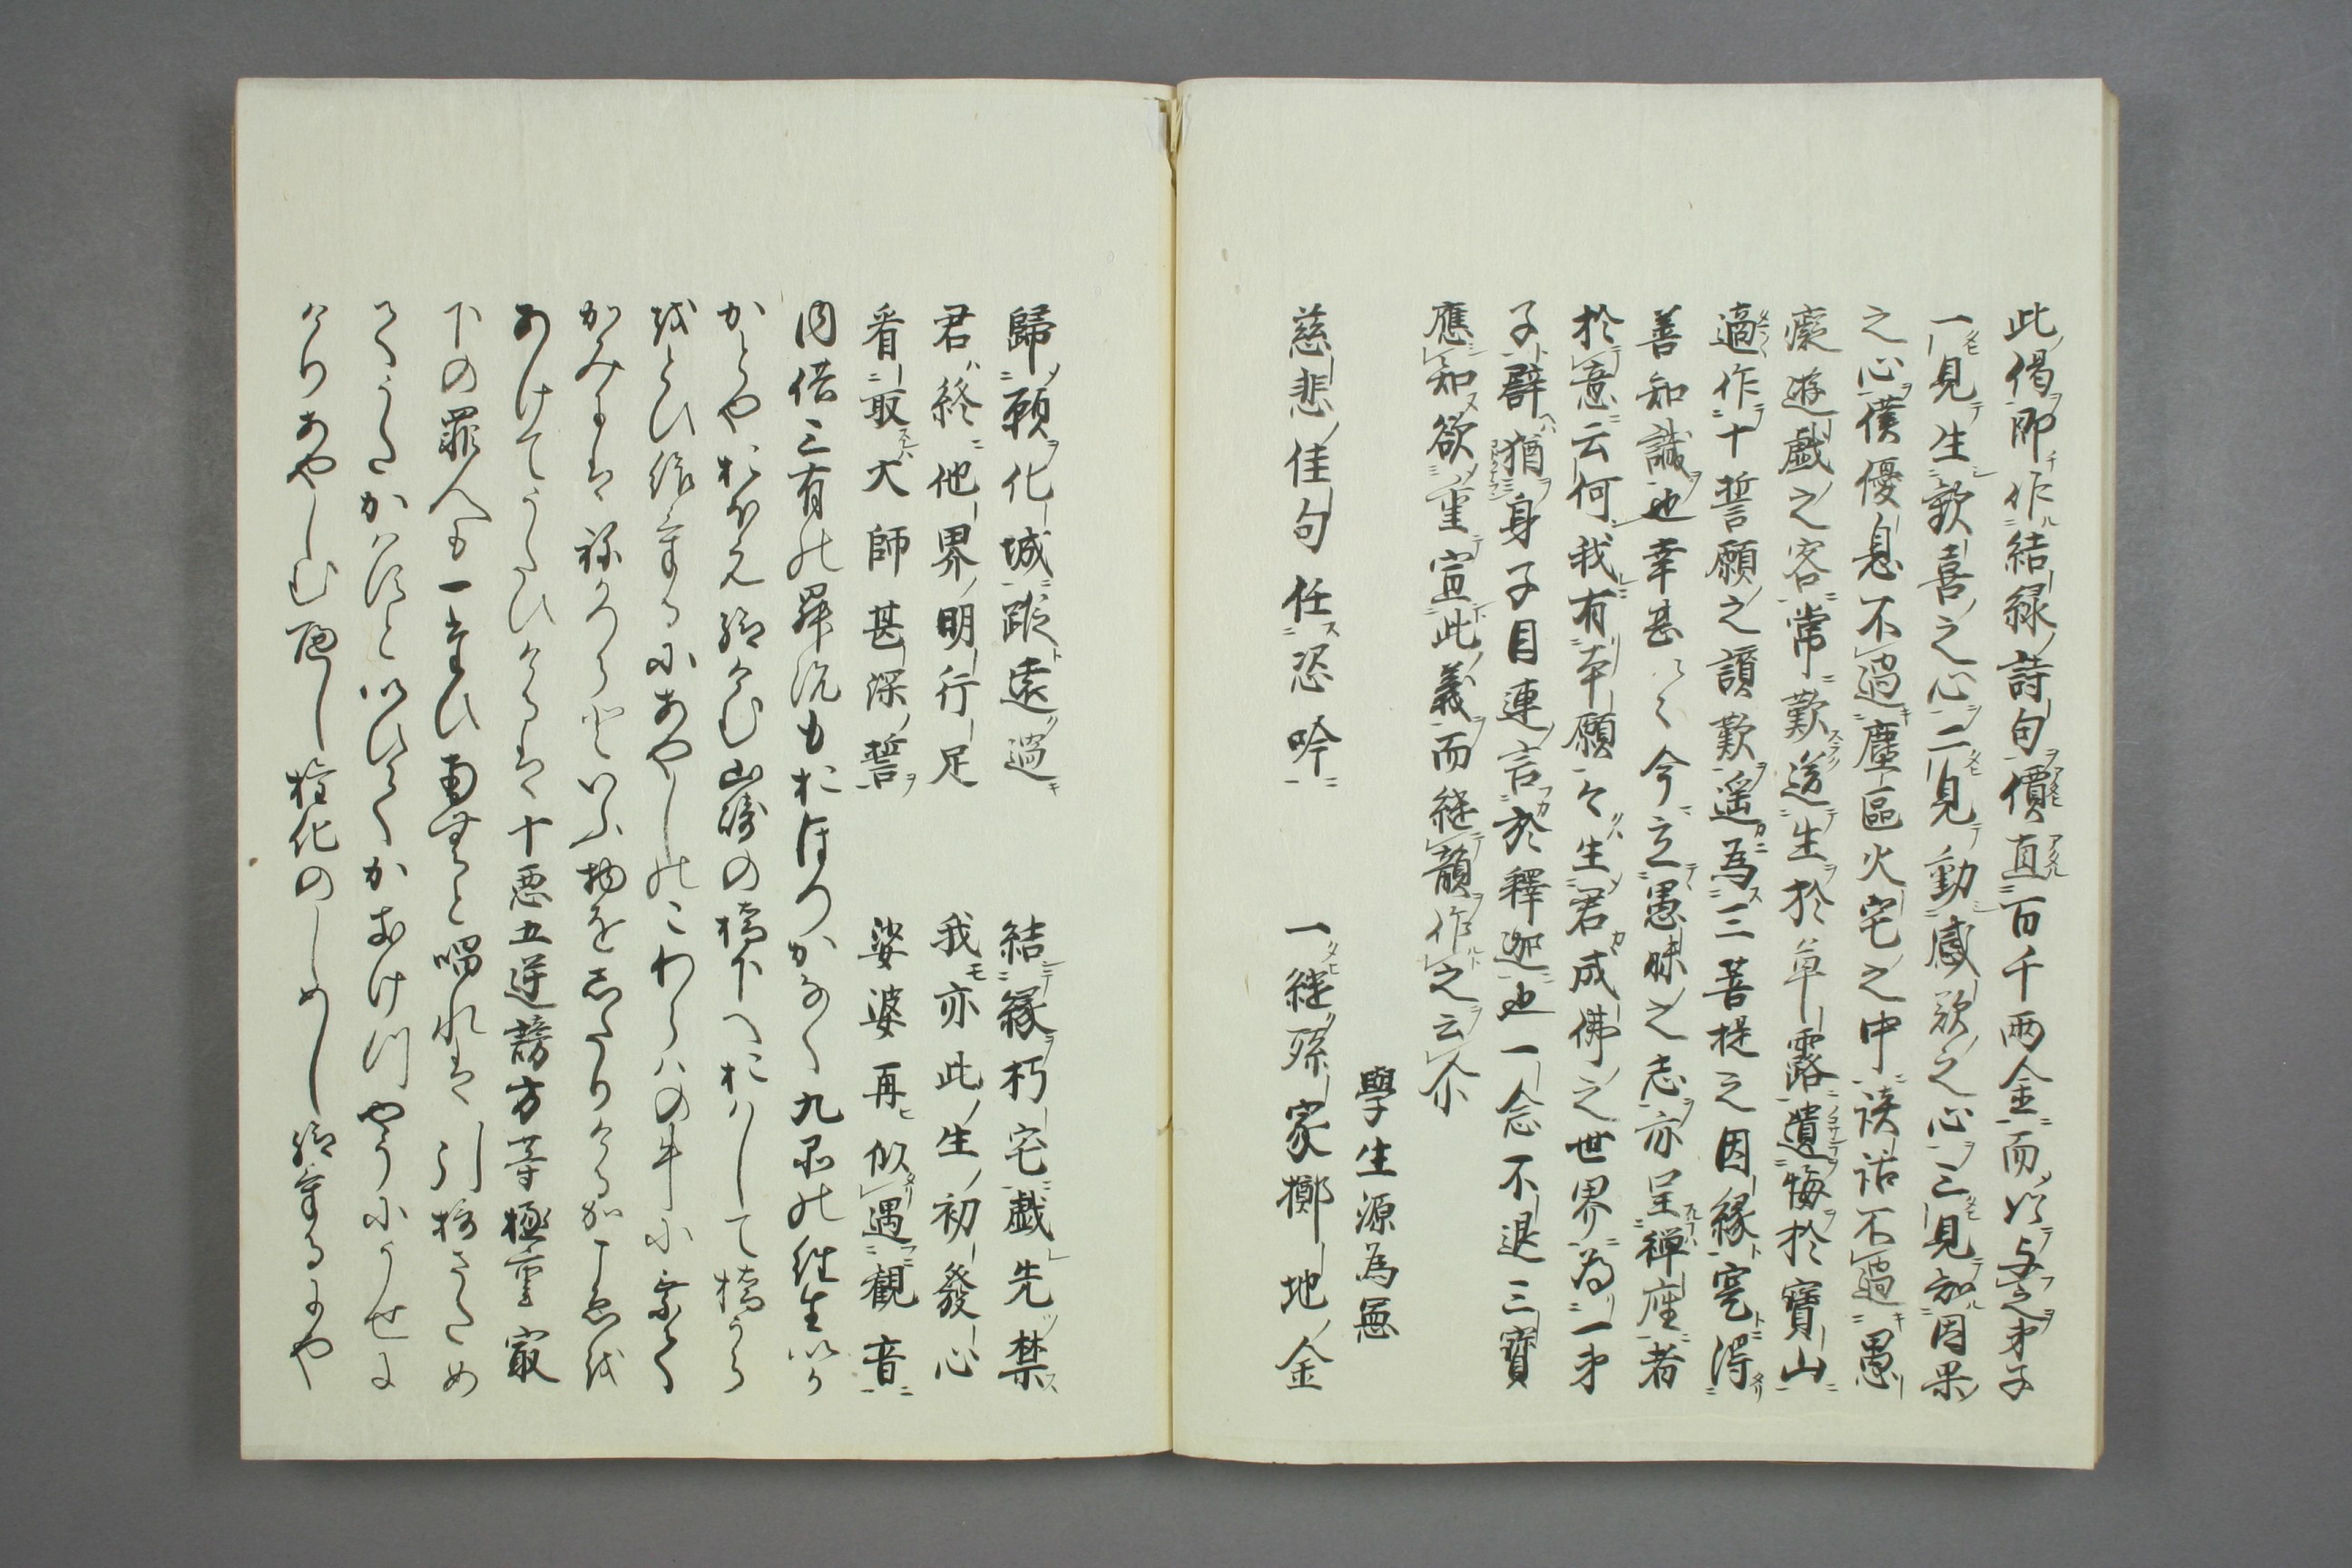 此偈即作結縁詩句價直百千兩金而以与之弟子
一見生歓喜之心二見動感歎之心三見知因果
之心僕優息不過塵區火宅之中談話不過愚
癡遊戯之客常歎送生於草露遺悔於寶山
適作十誓願之讃歎遥為三菩提之因縁寔得
善知識也幸甚々々今立愚昧之志亦呈禅座者
於意云何我有本願々生君成佛之世界為一弟
子譬猶身子目連言於釋迦也一念不退三寶
應知欲重宣此義而継韻作之云尒
學生源為憲
慈悲佳句任恣吟　一継孫家擲地金
歸願化城蹤遠過　結縁朽宅戯先禁
君終他界明行足　我亦此生初發心
看取大師甚深誓　娑婆再似遇観音
内信三有の罪院もおほつかなく九品の往生いか
かとやおほえ給けむ山崎の橋下へおはしして橋うら
をとひ給けるにあやしのこわらはの牛に乗て
かみより
あけてうたひけるは十悪五逆謗方等極重最
下の罪人も一たひ南無と唱れは引接さため
てうたかはすといひてかきけつやうにうせに
けりあやしむへし権化のしめし給けるにや